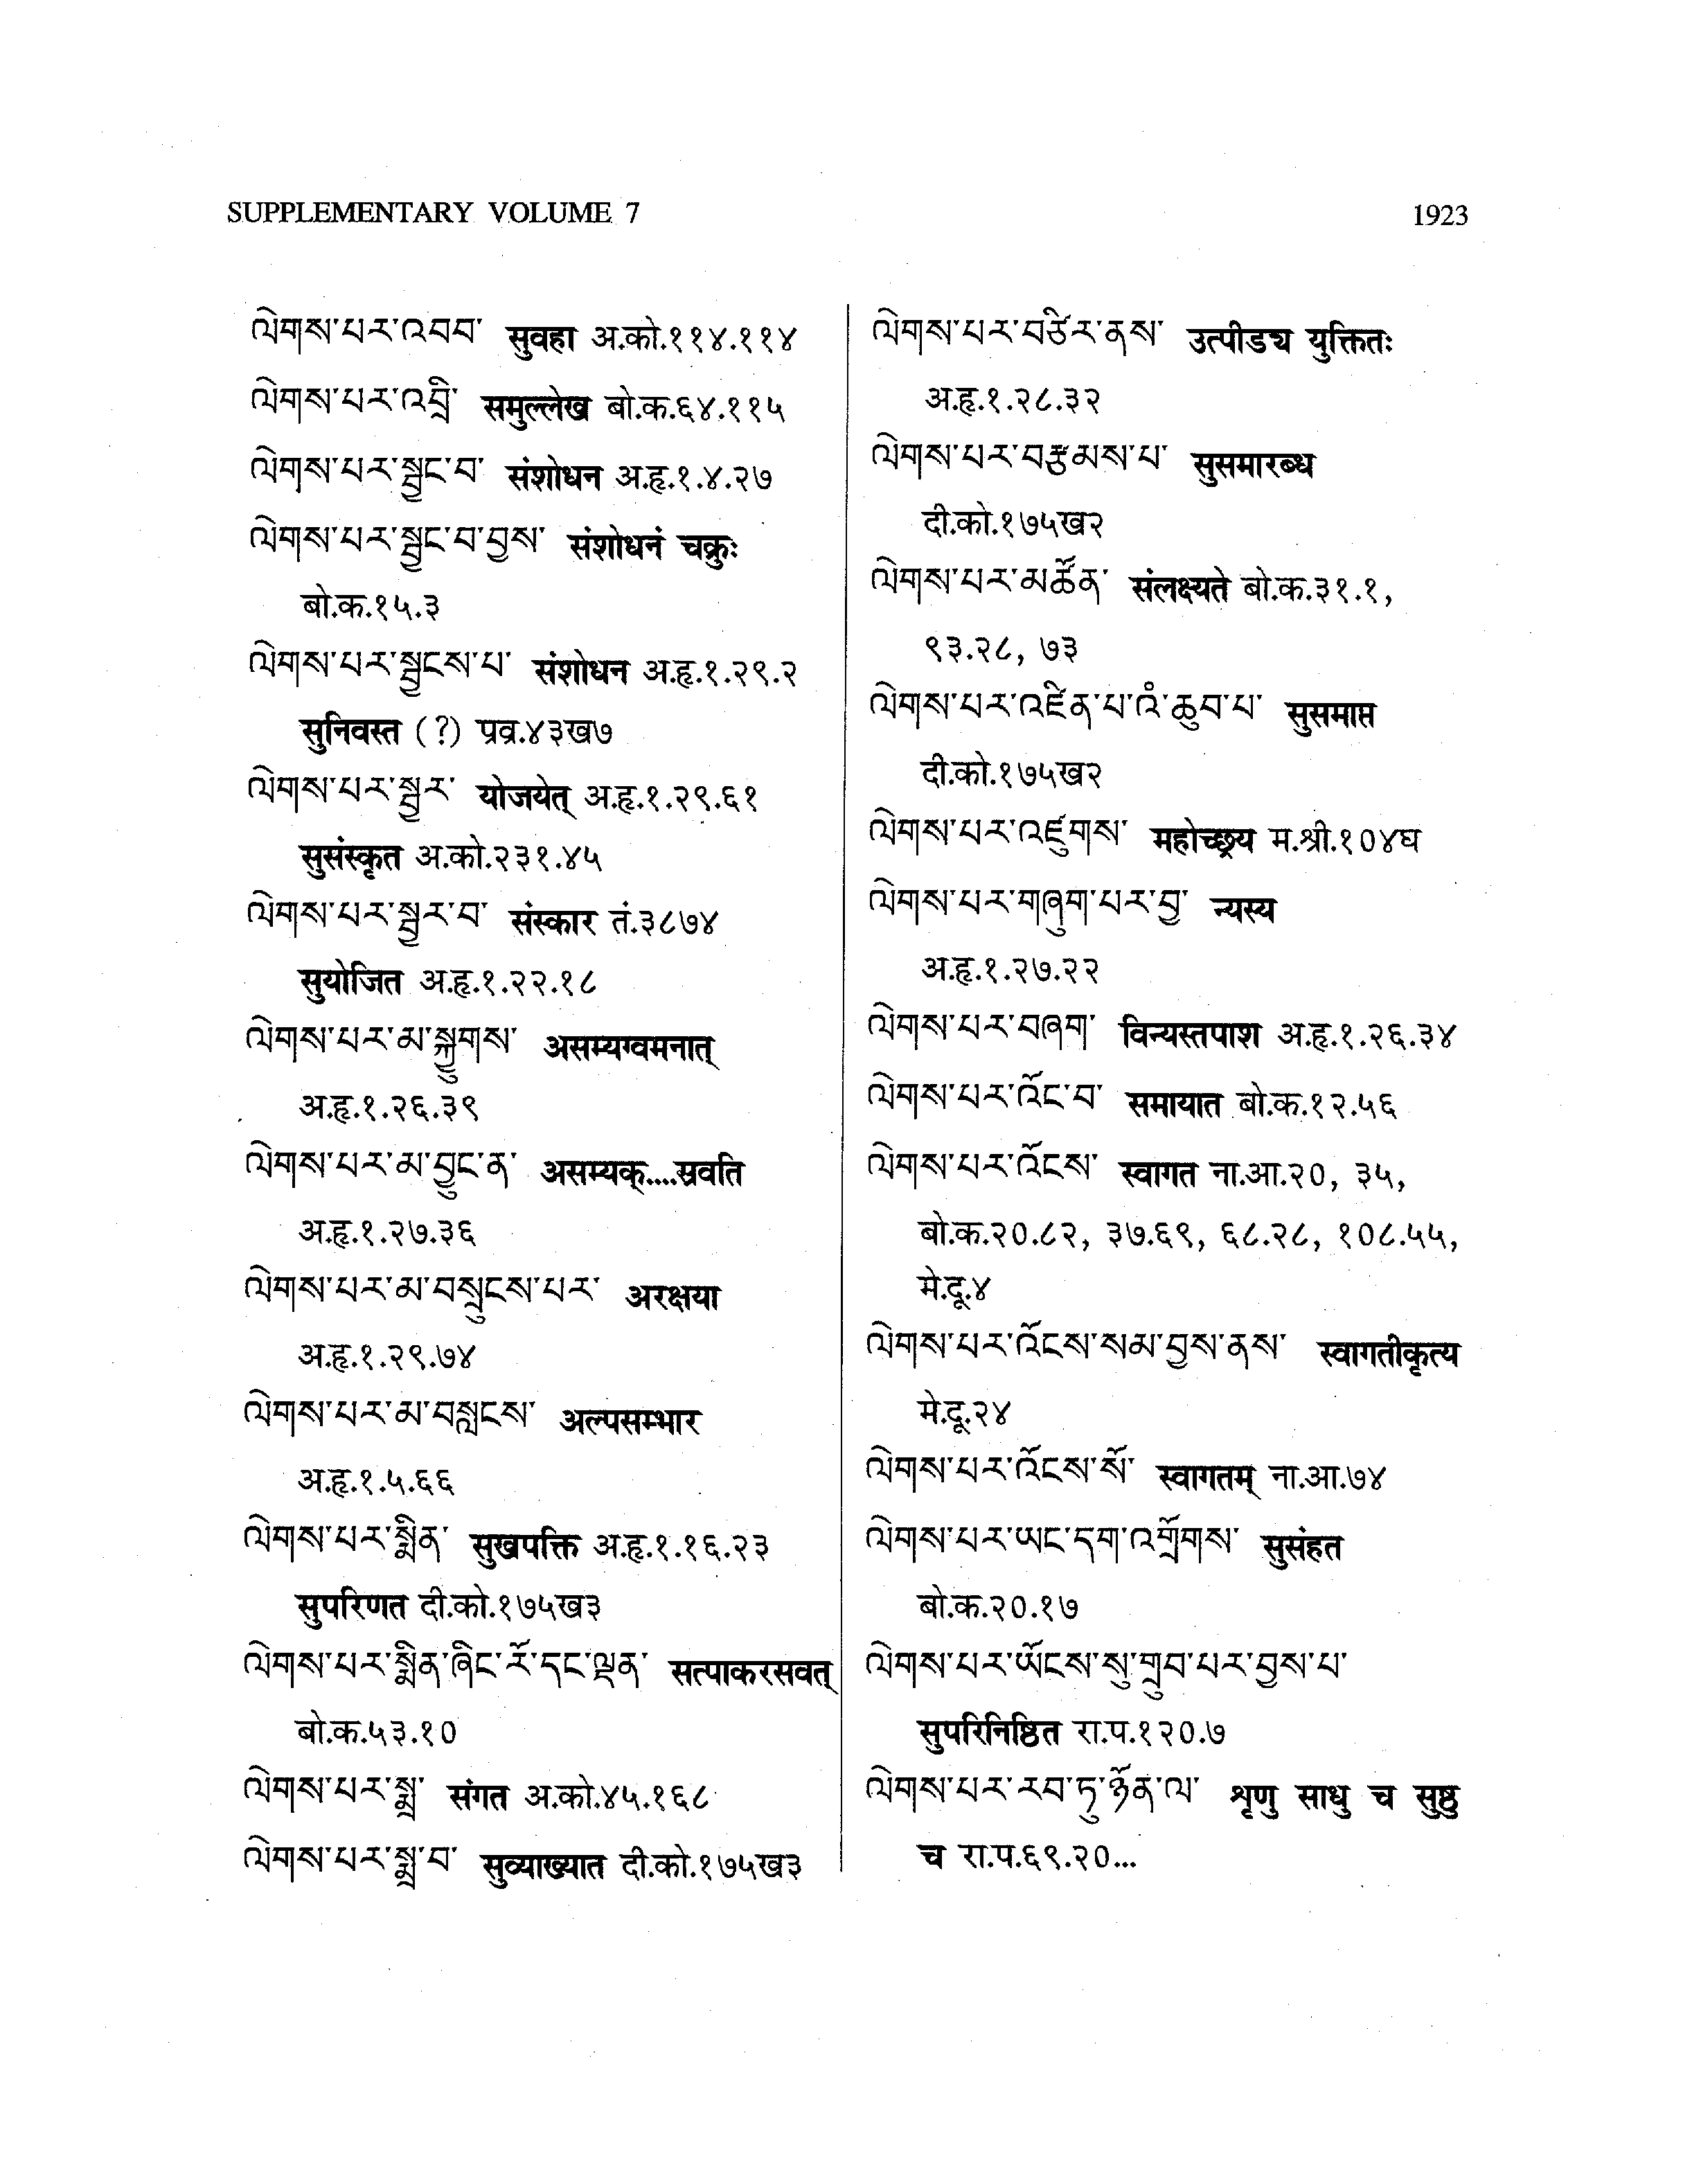 SUPPLEMENTARY VOLUME 7
1923
ལེགས་པར་འབབ་ सुवहा अ.को.११४.११४
ལེགས་པར་འབྲི་ समुल्लेख बो.क.६४.११५
ལེགས་པར་སྦྱང་བ་ संशोधन अ.हृ.१.४.२७
ལེགས་པར་སྦྱང་བ་བྱས་ संशोधनं चक्रुः
बो.क.१५.३
ལེགས་པར་སྦྱངས་པ་ संशोधन अ.हृ.१.२९.२
सुनिवस्त (?) प्रव्र.४३ख७
ལེགས་པར་སྦྱར་ योजयेत् अ.हृ.१.२९.६१
सुसंस्कृत अ.को.२३१.४५
ལེགས་པར་སྦྱར་བ་ संस्कार तं.३८७४
सुयोजित अ.हृ.१.२२.१८
ལེགས་པར་མ་སྐྱུགས་ असम्यग्वमनात्
अ.हृ.१.२६.३९
ལེགས་པར་མ་བྱུང་ན་ असम्यक्....स्रवति
अ.हृ.१.२७.३६
ལེགས་པར་མ་བསྲུངས་པར་ अरक्षया
अ.हृ.१.२९.७४
ལེགས་པར་མ་བསླངས་ अल्पसम्भार
अ.हृ.१.५.६६
ལེགས་པར་སྨིན་ सुखपक्ति अ.हृ.१.१६.२३
सुपरिणत दी.को.१७५ख३
ལེགས་པར་སྨིན་ཞིང་རོ་དང་ལྡན་ सत्पाकरसवत्
बो.क.५३.१०
ལེགས་པར་སྨྲ་ संगत अ.को.४५.१६८
ལེགས་པར་སྨྲ་བ་ सुव्याख्यात दी.को.१७५ख३
ལེགས་པར་བཙིར་ནས་ उत्पीड्य युक्तितः
अ.हृ.१.२८.३२
ལེགས་པར་བརྩམས་པ་ सुसमारब्ध
दी.को.१७५ख२
ལེགས་པར་མཚོན་ संलक्ष्यते बो.क.३१.१,
९३.२८, ७३
ལེགས་པར་འཛིན་པ་འཾ་ཆུབ་པ་ सुसमाप्त
दी.को.१७५ख२
ལེགས་པར་འཛུགས་ महोच्छ्रय म.श्री.१०४घ
ལེགས་པར་གཞུག་པར་བྱ་ न्यस्य
अ.हृ.१.२७.२२
ལེགས་པར་བཞག་ विन्यस्तपाश अ.हृ.१.२६.३४
ལེགས་པར་འོང་བ་ समायात बो.क.१२.५६
ལེགས་པར་འོངས་ स्वागत ना.आ.२०, ३५,
बो.क.२०.८२, ३७.६९, ६८.२८, १०८.५५,
मे.दू.४
ལེགས་པར་འོངས་སམ་བྱས་ནས་ स्वागतीकृत्य
मे.दू.२४
ལེགས་པར་འོངས་སོ་ स्वागतम् ना.आ.७४
ལེགས་པར་ཡང་དག་འགྲོགས་ सुसंहत
बो.क.२०.१७
ལེགས་པར་ཡོངས་སུ་གྲུབ་པར་བྱས་པ་
सुपरिनिष्ठित रा.प.१२०.७
ལེགས་པར་རབ་ཏུ་ཉོན་ལ་ शृणु साधु च सुष्ठु
च रा.प.६९.२०...